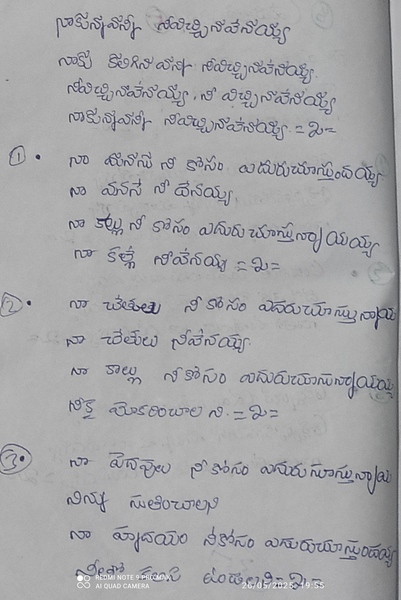 నాకున్నవన్నీ నీవిచ్చినవేనయ్య
నాకు కలిగినవన్ని నీవిచ్చినవేనయ్య
నీవిచ్చినవేనయ్య, నీ విచ్చినవేనయ్య
నాకున్నవన్ని నీవిచ్చినవేనయ్య =2=
1. నా మనసే నీ కోసం ఎదురుచూస్తుందయ్య
నా మనసే నీ దేనయ్య
నా కాళ్లు నీ కోసం ఎదురుచూస్తున్నాయయ్య
నా కళ్లే నీవేనయ్య =2=
2. నా చేతులు నీ కోసం ఎదురుచూస్తున్నాయ
నా చేతులు నీవేనయ్య
నా కాల్లు నీకోసం ఎదురుచూసున్నాయయ్య
నీకై మోకరించాల ని =2=
3. నా పెదవులు నీ కోసం ఎదురుచూస్తున్నాయ
నిన్ను స్తుతించాలని
నా హృదయం నీకోసం ఎదురుచూస్తుందయ్య
నీతో ఉండాలని =2=
REDMI NOTE 9 PRO MAX
AI QUAD CAMERA
19:55